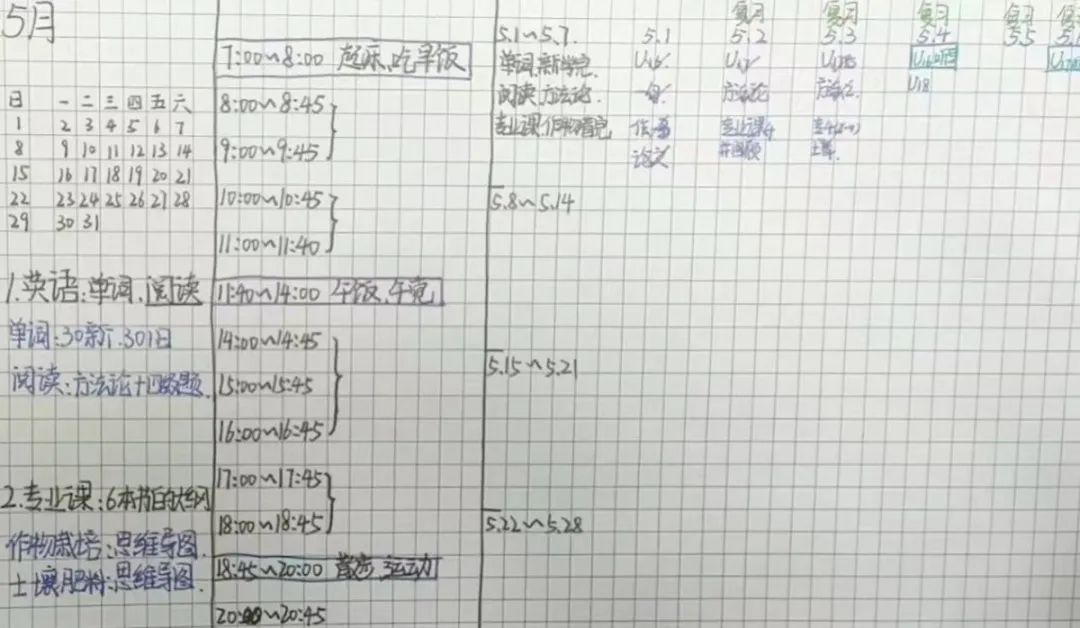 5月
日 一 二 三 四 五 六
1 2 3 4 5 6 7
8 9 10 11 12 13 14
15 16 17 18 19 20 21
22 23 24 25 26 27 28
29 30 31
1.英语:单词、阅读
单词:30新、30旧
阅读:方法论+四级题
2.专业课:6本书的大纲
作物栽培:思维导图
土壤肥料:思维导图
7:00~8:00 起床、吃早饭
8:00~8:45
9:00~9:45
10:00~10:45
11:00~11:40
11:40~14:00 午饭、午觉
14:00~14:45
15:00~15:45
16:00~16:45
17:00~17:45
18:00~18:45
18:45~20:00 运动
20:00~20:45
复习 复习 复习 复习
5.1~5.7. 5.1 5.2 5.3 5.4 5.5
单词.新学完 U16 U17
阅读.方法论. 方法论 方法论 U18
专业课.作物看完 专业课
论文
5.8~5.14
5.15~5.21
5.22~5.28